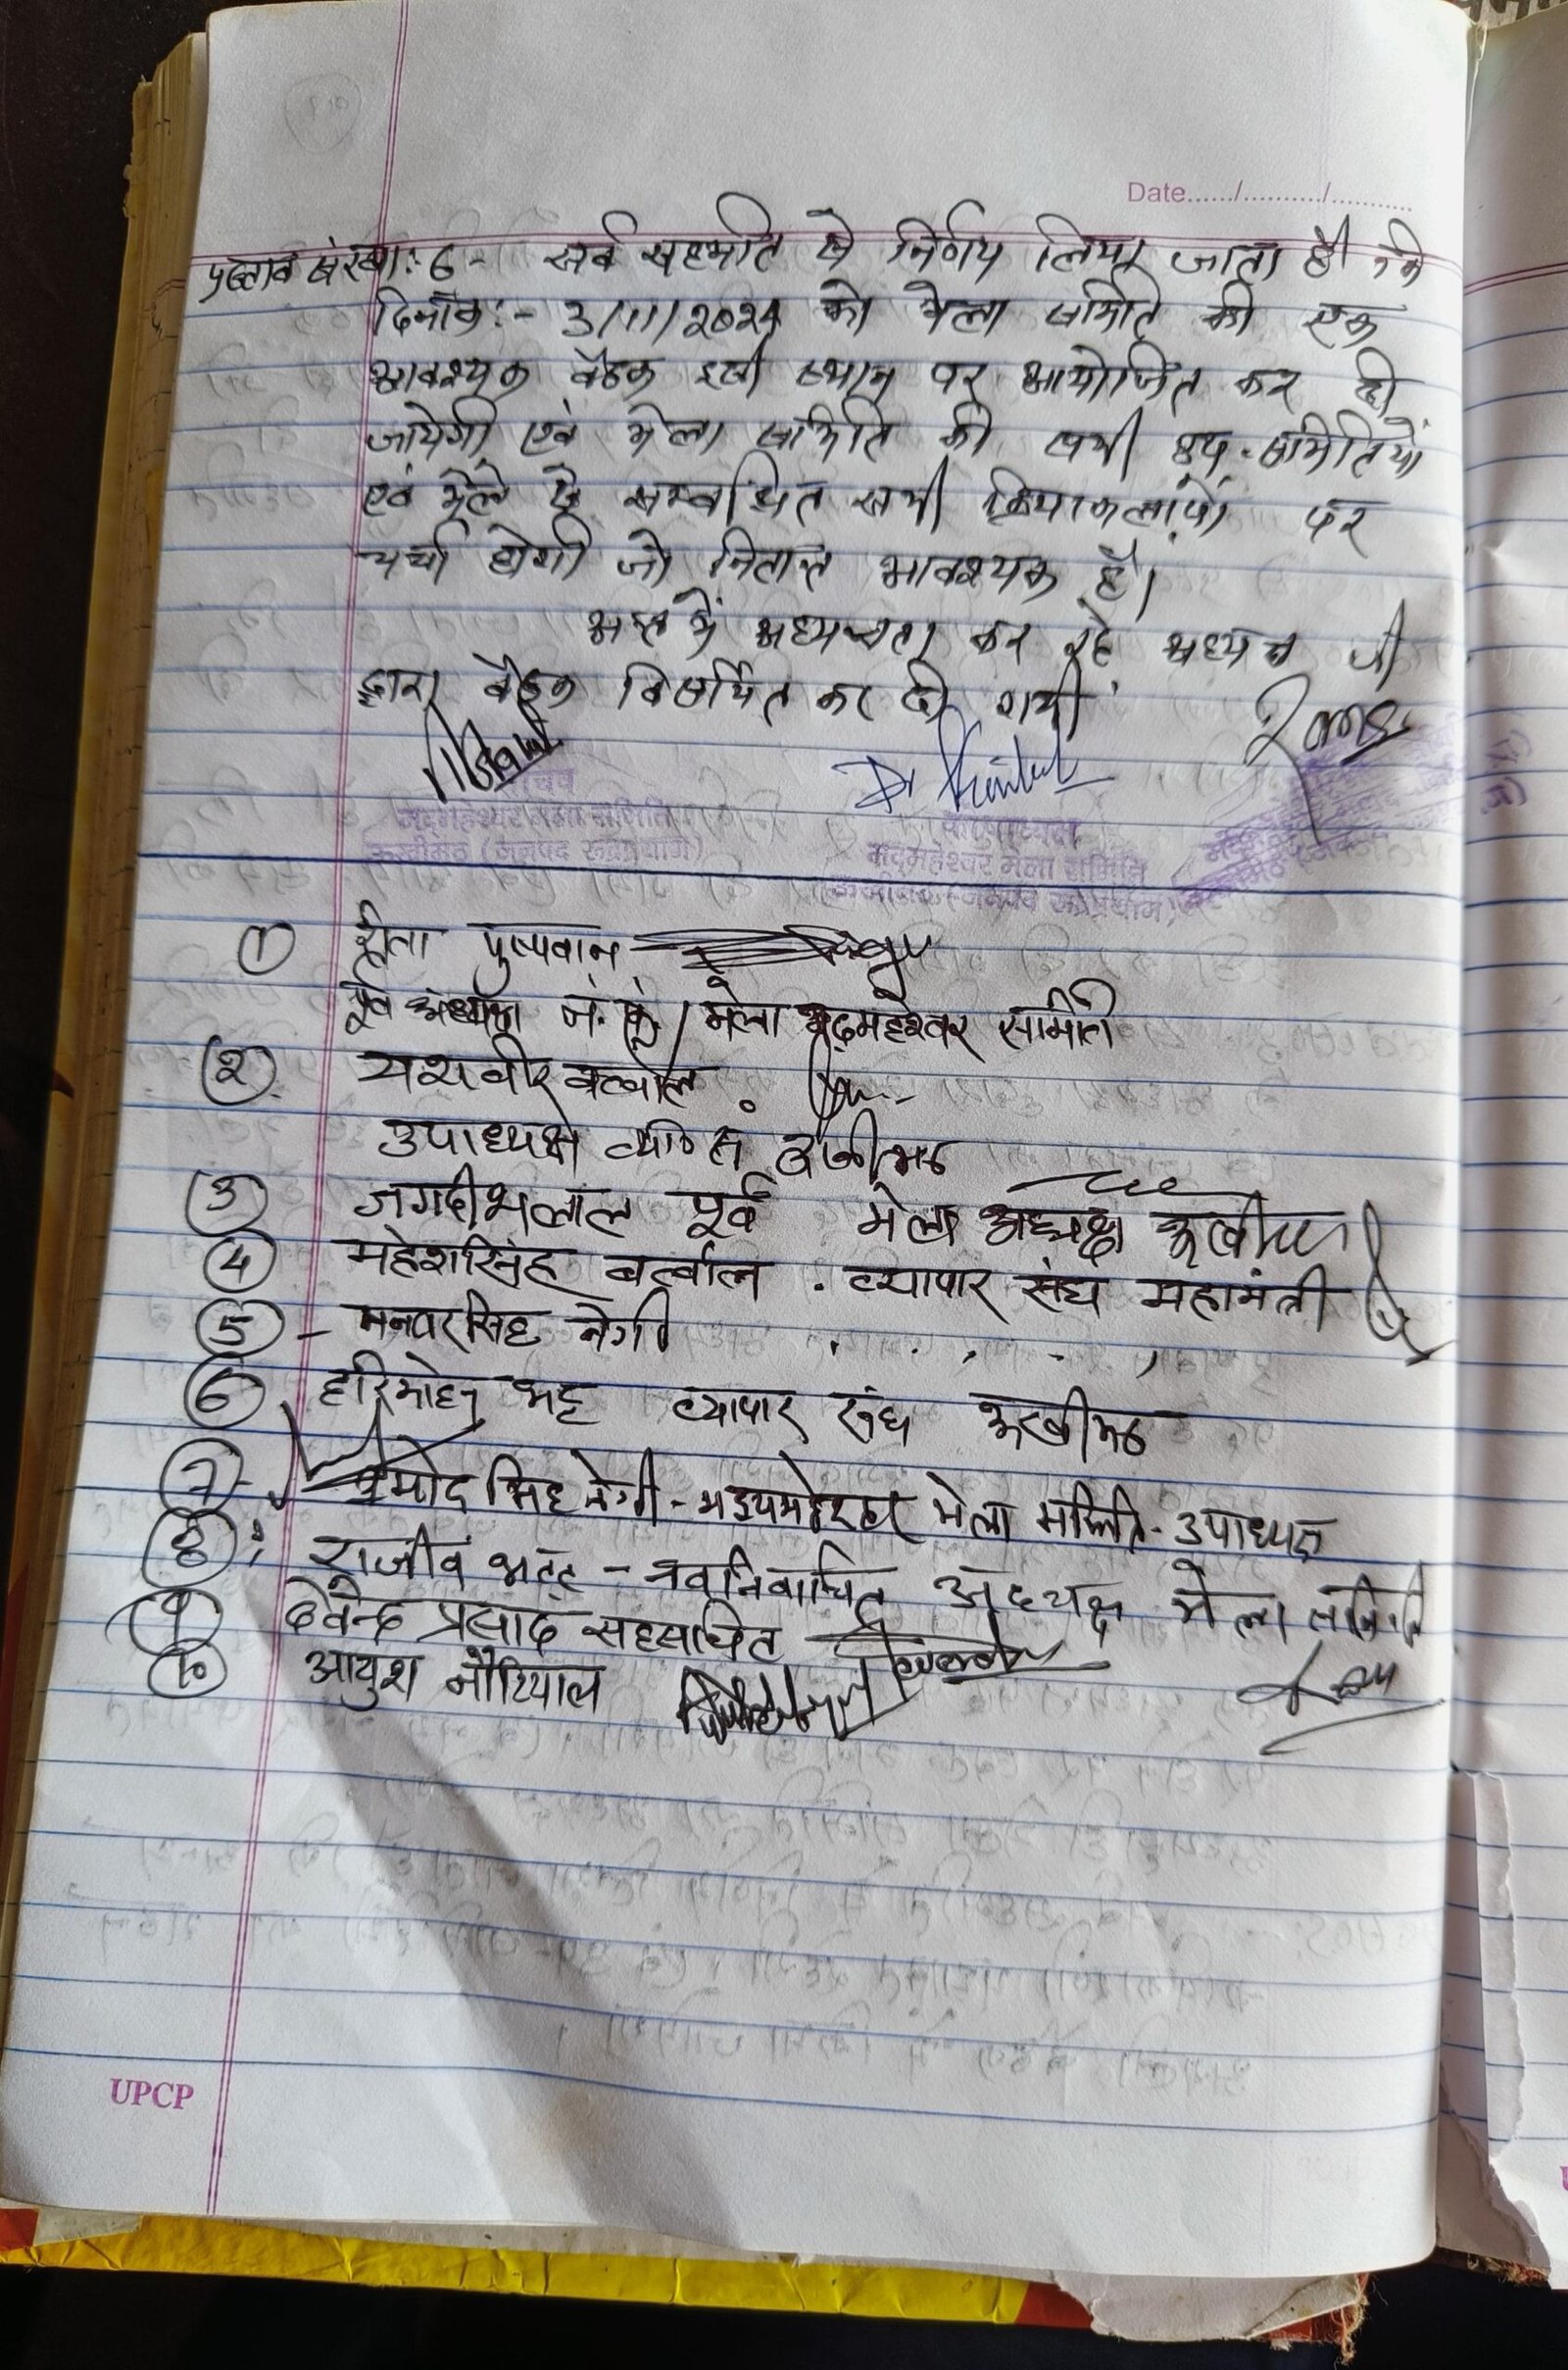 Date....../........../..........
प्रस्ताव संख्या:- 6 - सर्व सहमति से निर्णय लिया जाता है कि
दिनांक:- 3/11/2024 को मेला समिति की एक
आवश्यक बैठक इसी स्थान पर आयोजित कर दी
जायेगी एवं मेला समिति की सभी उप-समितियों
एवं मेले से सम्बन्धित सभी क्रियाकलापों पर
चर्चा होगी जो नितान्त आवश्यक है।
अन्त में अध्यक्षता कर रहे अध्यक्ष जी
द्वारा बैठक विसर्जित कर दी गयी
सचिव
मदमहेश्वर मेला समिति
ऊखीमठ (जनपद रुद्रप्रयाग)
कोषाध्यक्ष
मदमहेश्वर मेला समिति
ऊखीमठ (जनपद रुद्रप्रयाग)
① रीता पुष्पवान
पूर्व अध्यक्ष न. पं. / मेला मदमहेश्वर समिति
② यशवीर बर्त्वाल
उपाध्यक्ष व्या० सं० ऊखीमठ
③ जगदीश लाल पूर्व मेला अध्यक्ष ऊखीमठ
④ महेश सिंह बर्त्वाल . व्यापार संघ महामंत्री
⑤ - मनवर सिंह नेगी
⑥ हरिमोहन भट्ट व्यापार संघ ऊखीमठ
⑦ - प्रमोद सिंह नेगी - मद्यमहेश्वर मेला समिति - उपाध्यक्ष
⑧ : राजीव भट्ट - नवनिर्वाचित अध्यक्ष मेला समिति
⑨ देवेन्द्र प्रसाद सहसचिव
⑩ आयुश नौटियाल
UPCP